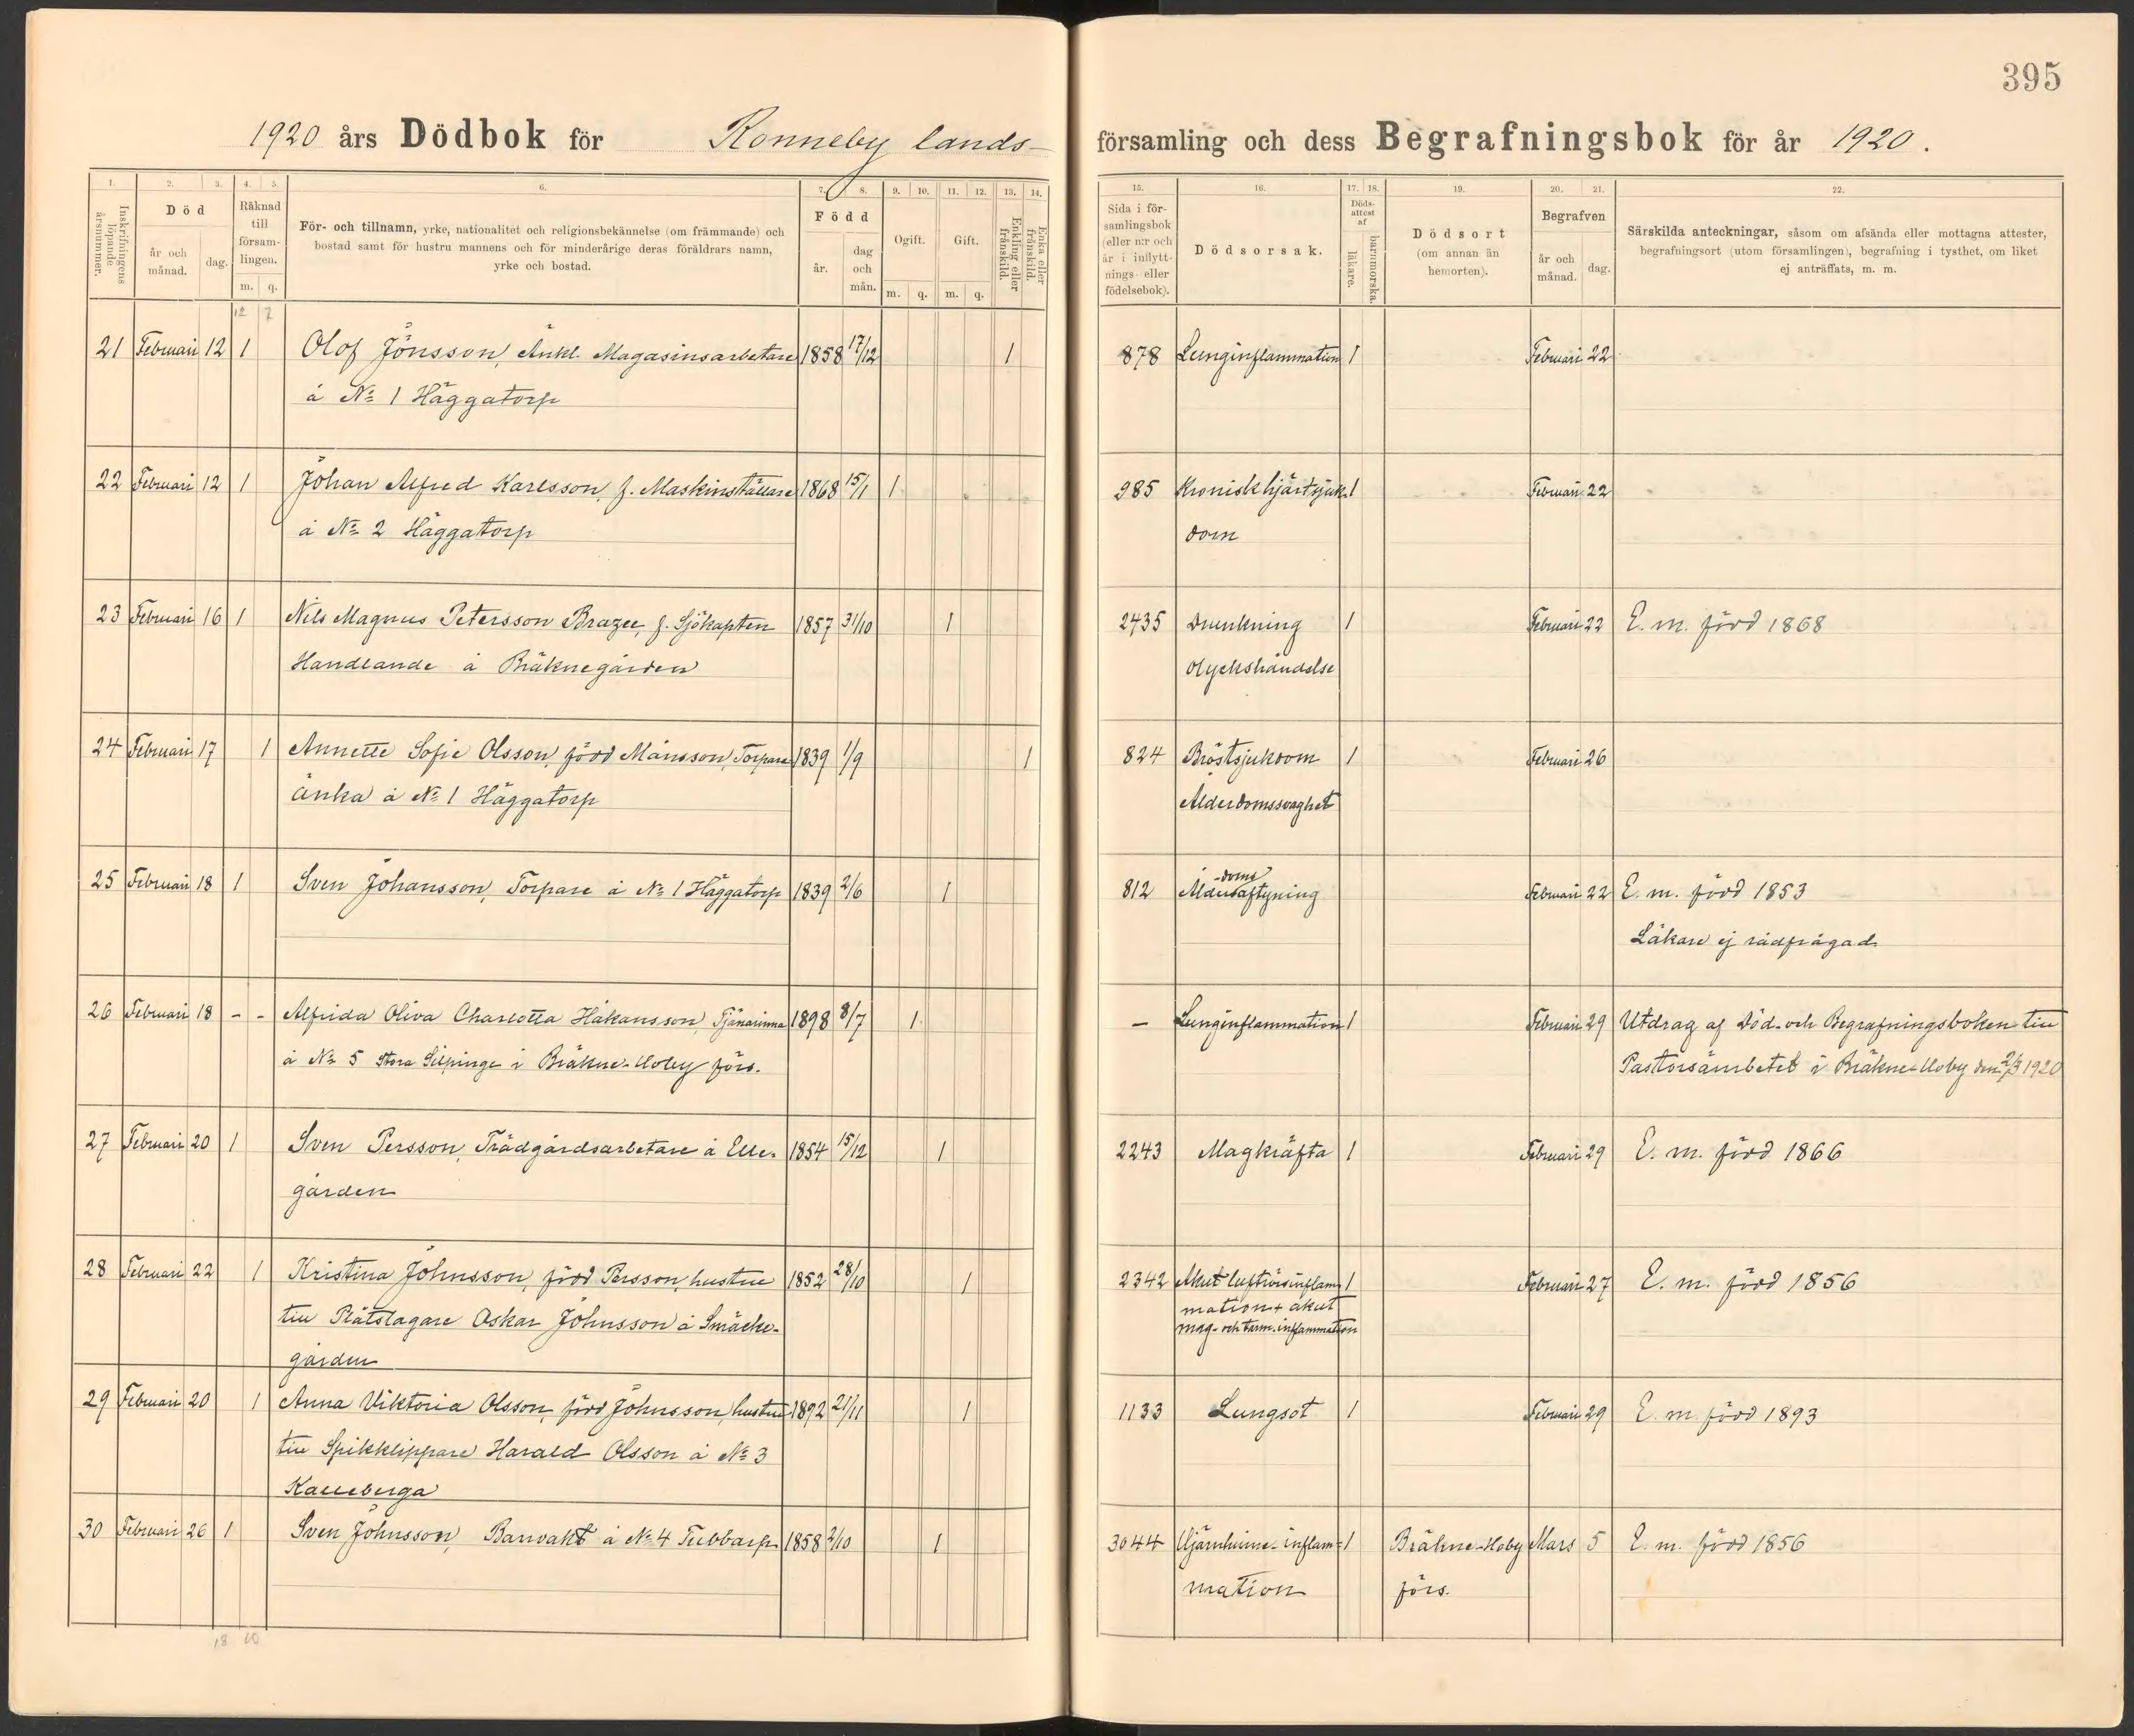 395
1920 års Dödbok för Ronneby lands-
församling och dess Begrafningsbok för år 1920.
1. 2. 3. 4. 5. 6. 7. 8. 9. 10. 11. 12. 13. 14.
Inskrifningens löpande årsnummer.
Död
år och månad.
dag.
Räknad till församlingen.
m. q.
För- och tillnamn, yrke, nationalitet och religionsbekännelse (om främmande) och
bostad samt för hustru mannens och för minderårige deras föräldrars namn,
yrke och bostad.
Född
år.
dag och mån.
Ogift.
m. q.
Gift.
m. q.
Enkling eller frånskild.
Enka eller frånskild.
15. 16. 17. 18. 19. 20. 21. 22.
Sida i församlingsbok (eller n:r och år i inflyttnings- eller födelsebok).
Dödsorsak.
Dödsattest af
läkare.
barnmorska.
Dödsort
(om annan än hemorten).
Begrafven
år och månad.
dag.
Särskilda anteckningar, såsom om afsända eller mottagna attester,
begrafningsort (utom församlingen), begrafning i tysthet, om liket
ej anträffats, m. m.
12 7
21 Februari 12 1 Olof Jönsson, Änkl. Magasinsarbetare 1858 17/12 1 878 Lunginflammation 1 Februari 22
å No 1 Häggatorp
22 Februari 12 1 Johan Alfred Karlsson, f. Maskinställare 1868 15/1 1 985 Kronisk hjärtsjuk- 1 Februari 22
å No 2 Häggatorp dom
23 Februari 16 1 Nils Magnus Petersson Brazee, f. Sjökapten 1857 31/10 1 2435 Drunkning 1 Februari 22 E. m. förd 1868
Handlande å Bräknegården Olyckshändelse
24 Februari 17 1 Annette Sofie Olsson, född Månsson, Torpare- 1839 1/9 1 824 Bröstsjukdom 1 Februari 26
änka å No 1 Häggatorp Alderdomssvaghet
25 Februari 18 1 Sven Johansson, Torpare å No 1 Häggatorp 1839 2/6 1 812 Ålderdomsaftyning Februari 22 E. m. förd 1853
Läkare ej rådfrågad
26 Februari 18 - - Alfrida Oliva Charlotta Håkansson, Tjänarinna 1898 8/7 1 - Lunginflammation 1 Februari 29 Utdrag af död- och Begrafningsboken till
å No 5 Stora Silpinge i Bräkne-Hoby förs. Pastorsämbetet i Bräkne-Hoby den 2/3 1920
27 Februari 20 1 Sven Persson, Trädgårdsarbetare å Elle- 1854 15/12 1 2243 Magkräfta 1 Februari 29 E. m. förd 1866
gården
28 Februari 22 1 Kristina Johnsson, född Persson, hustru 1852 28/10 1 2342 Akut luftrörsinflam- 1 Februari 27 E. m. förd 1856
till Plåtslagare Oskar Johnsson å Smäcke- mation + akut
gården mag- och tarm-inflammation
29 Februari 20 1 Anna Viktoria Olsson, född Johnsson, hustru 1892 21/11 1 1133 Lungsot 1 Februari 29 E. m. förd 1893
till Spikklippare Harald Olsson å No 3
Kalleberga
30 Februari 26 1 Sven Johnsson, Banvakt å No 4 Tubbarp 1858 2/10 1 3044 Hjärnhinne-inflam- 1 Bräkne-Hoby Mars 5 E. m. förd 1856
mation förs.
18 10